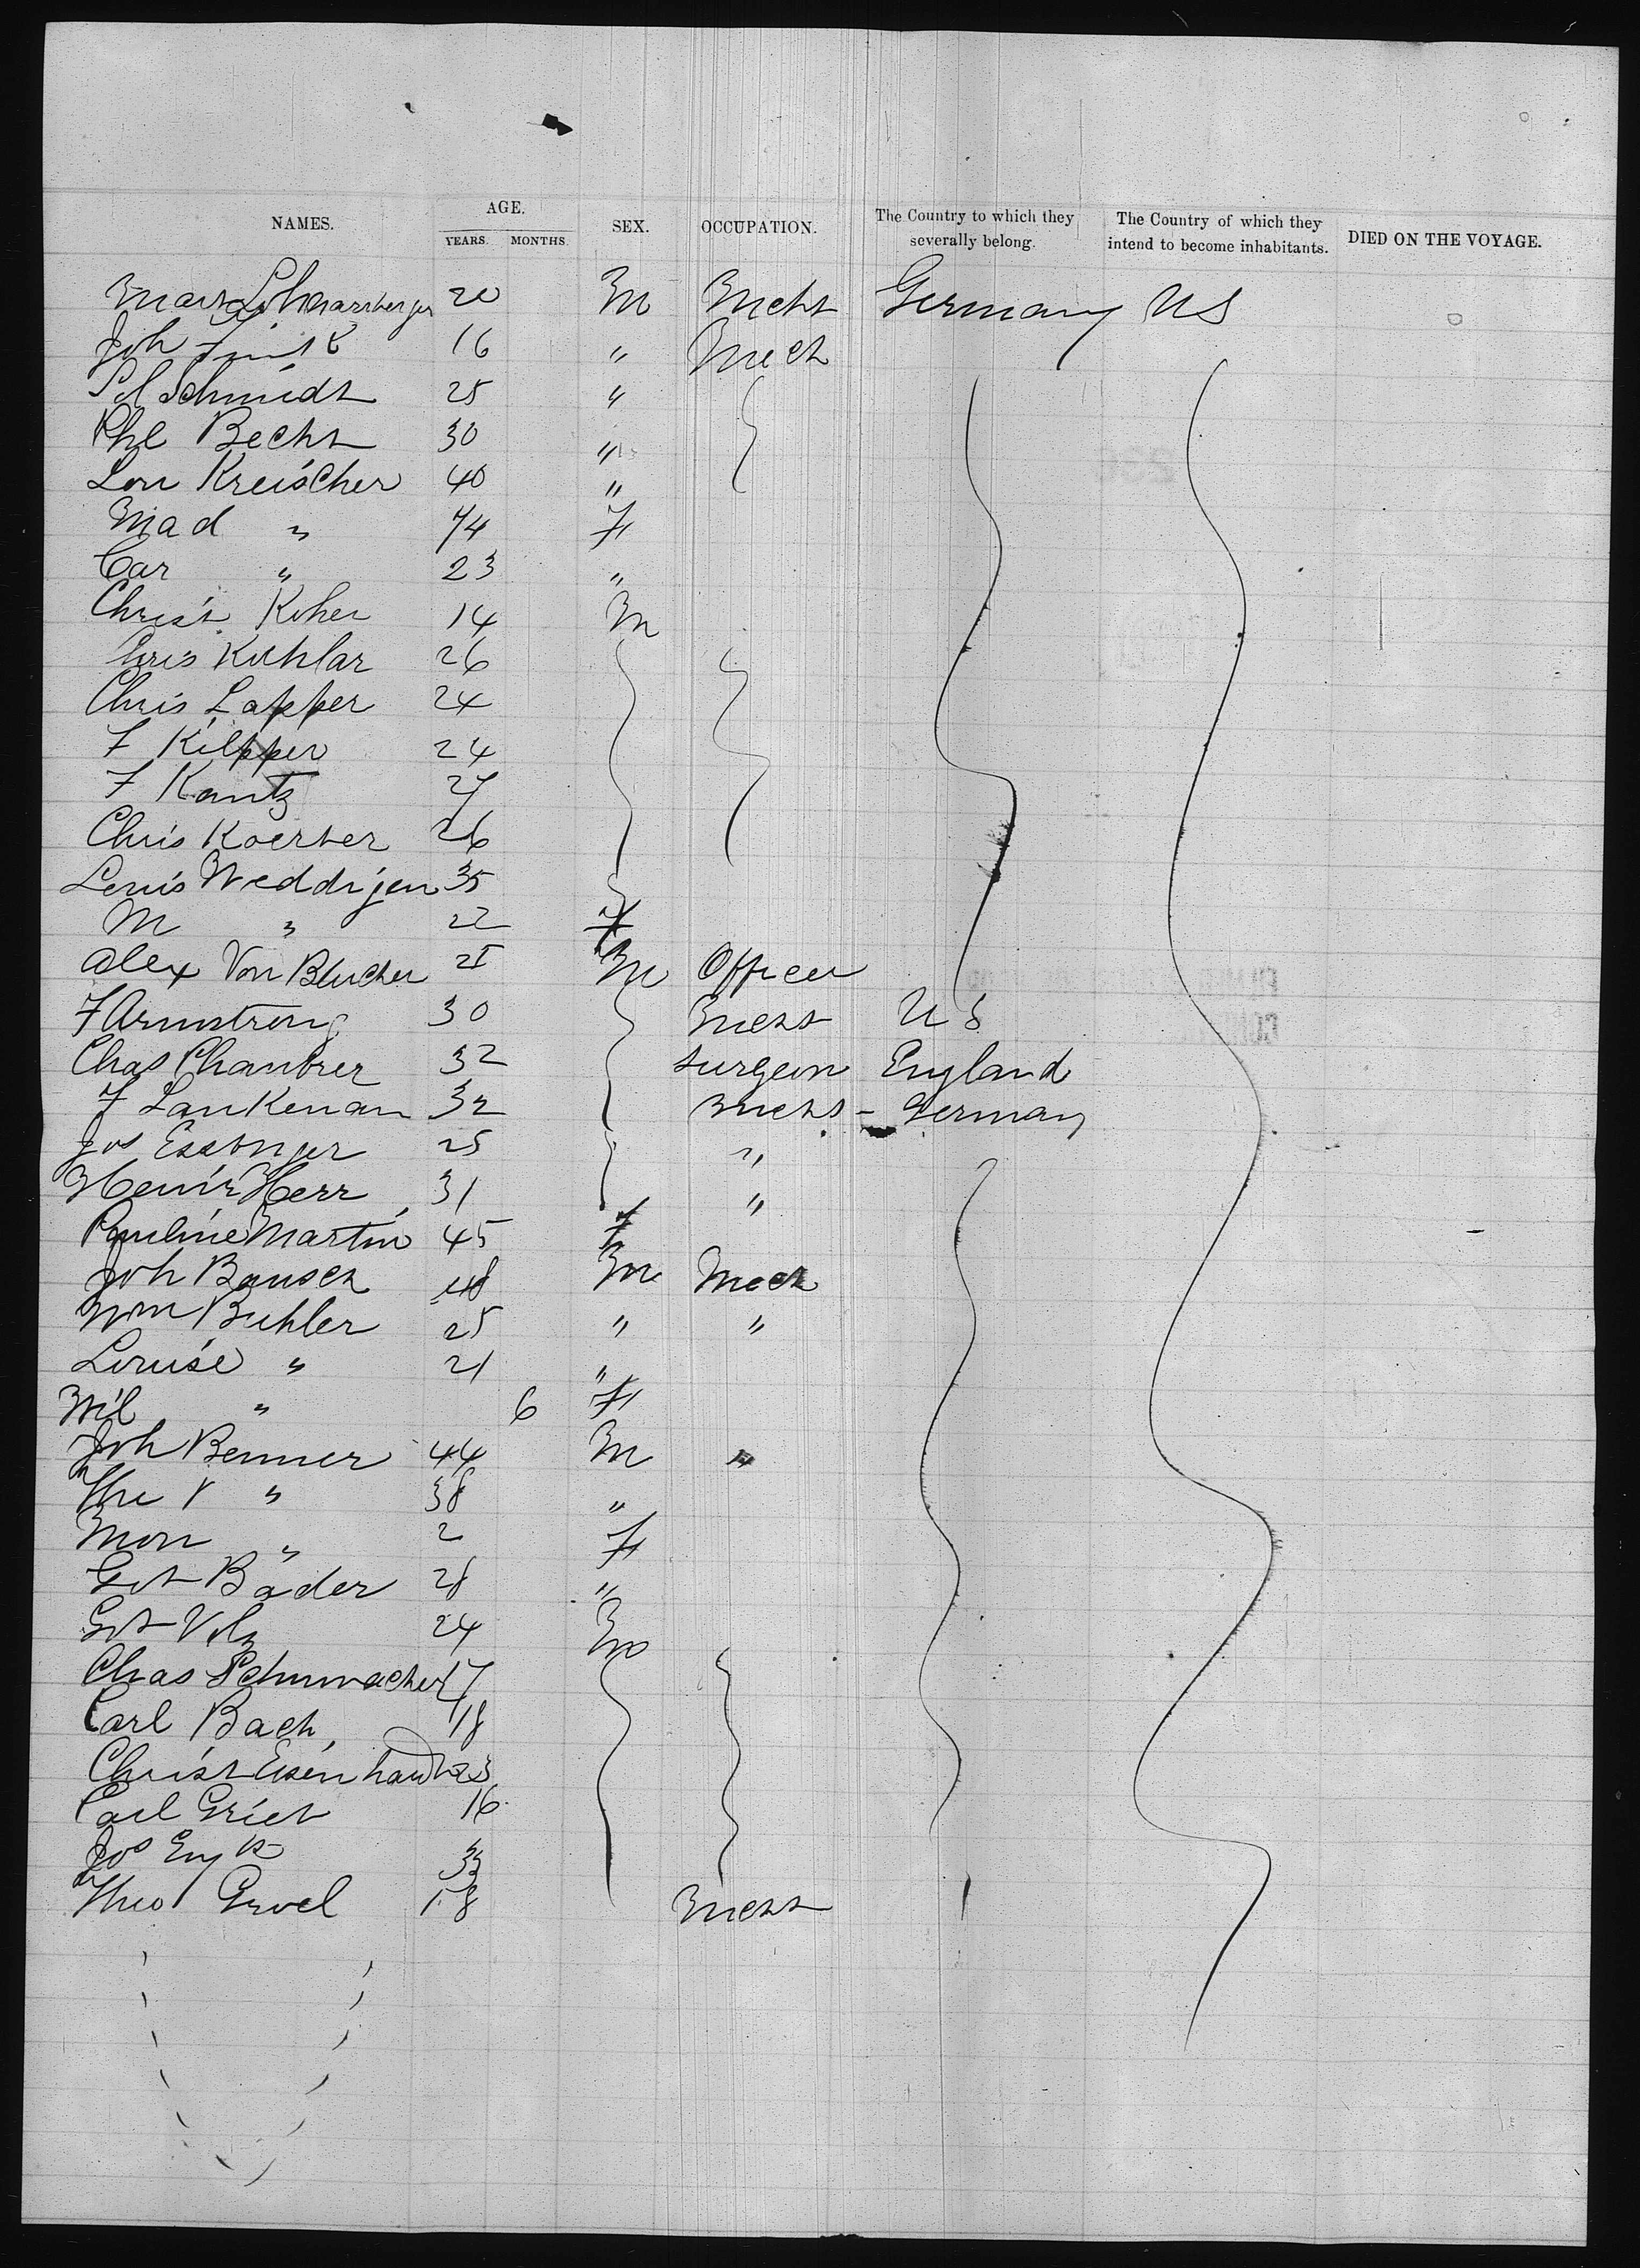 NAMES. AGE. YEARS. MONTHS. SEX. OCCUPATION. The Country to which they severally belong. The Country of which they intend to become inhabitants. DIED ON THE VOYAGE.
20 M Mcht Germany US
Joh 16 " Mech
Schmidt 25 "
Phl Becht 30 "
Lou Kreischer 40 "
Mad " 74 F
Car " 23 "
Christ Koher 14 M
Chris Kuhlar 26
Chris Lapper 24
F Kilpper 24
F Kantz 27
Chris Koerber 26
Louis Weddijen 35
M " 22 F
Alex Von Blucher 21 M Officer
F Armstrong 30 Mcht U S
Chas 32 Surgeon England
F Lankenau 32 Mcht - Germany
Jos 25 "
Henr Herr 31 "
Pauline Martin 45 F
Joh Bausch 48 M Mech
Wm Buhler 25 " "
Louise " 21 "
Wil " 6 F
Joh Benner 44 M "
" 38 "
" 2 F
Got Bader 28 "
Got Volz 24 M
Chas Schumacher 17
Carl Bach 18
Christ Eisenhardt 23
Carl Griet 16
Jos 33
Theo 18 Mcht